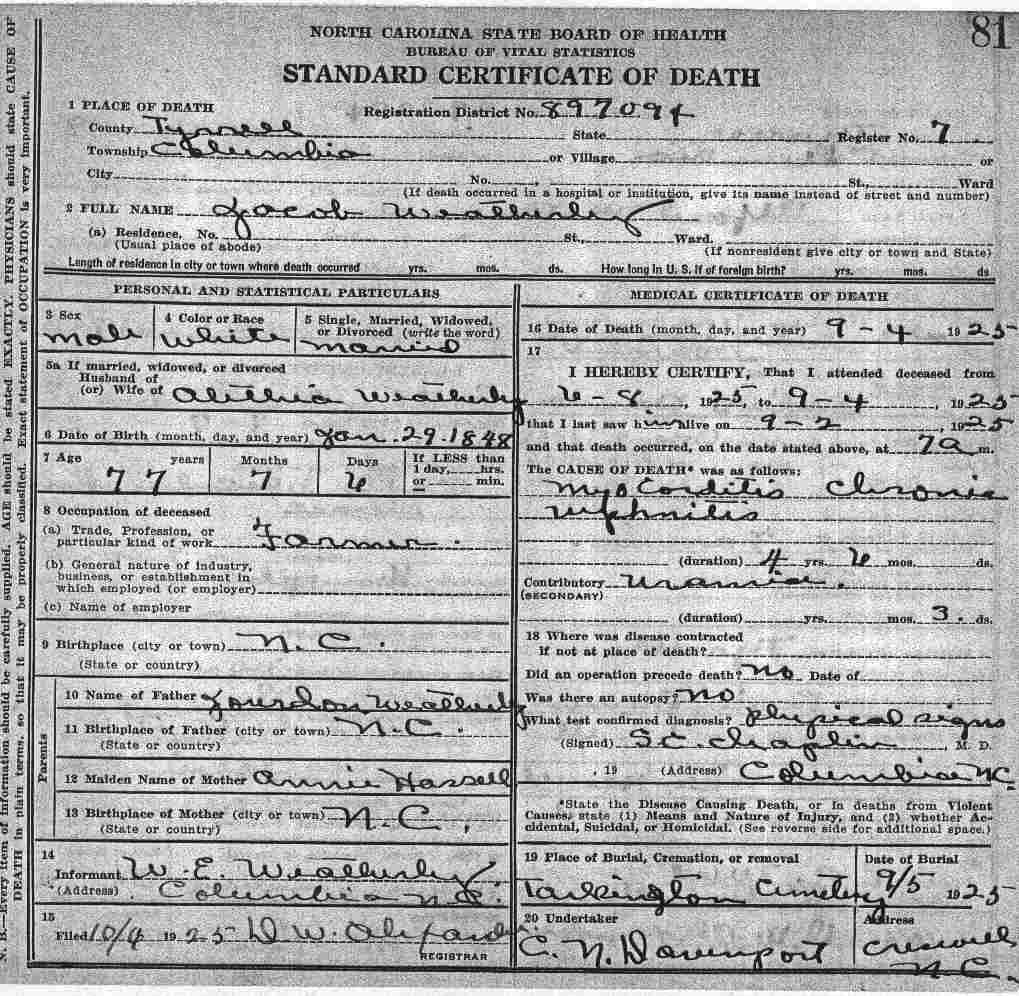 81
NORTH CAROLINA STATE BOARD OF HEALTH
BUREAU OF VITAL STATISTICS
STANDARD CERTIFICATE OF DEATH
1 PLACE OF DEATH
Registration District No. 897094
County Tyrrell State Register No. 7
Township Columbia or Village or
City No. St., Ward
(If death occurred in a hospital or institution, give its name instead of street and number)
2 FULL NAME Jacob Weatherly
(a) Residence, No. St., Ward.
(Usual place of abode) (If nonresident give city or town and State)
Length of residence in city or town where death occurred yrs. mos. ds. How long in U. S. if of foreign birth? yrs. mos. ds
PERSONAL AND STATISTICAL PARTICULARS
3 Sex 4 Color or Race 5 Single, Married, Widowed,
or Divorced (write the word)
Male White Married
5a If married, widowed, or divorced
Husband of
(or) Wife of Alithia Weatherly
6 Date of Birth (month, day, and year) Jan. 29. 1848
7 Age years Months Days If LESS than
1 day, hrs.
or min.
77 7 6
8 Occupation of deceased
(a) Trade, Profession, or
particular kind of work Farmer.
(b) General nature of industry,
business, or establishment in
which employed (or employer)
(c) Name of employer
9 Birthplace (city or town) N.C.
(State or country)
Parents
10 Name of Father Jourdon Weatherly
11 Birthplace of Father (city or town) N.C.
(State or country)
12 Maiden Name of Mother Annie Hassell
13 Birthplace of Mother (city or town) N.C.
(State or country)
14
Informant W. E. Weatherly
(Address) Columbia N.C.
15
Filed 10/4 1925 D W.
REGISTRAR
MEDICAL CERTIFICATE OF DEATH
16 Date of Death (month, day, and year) 9-4 1925
17
I HEREBY CERTIFY, That I attended deceased from
6-8, 1925, to 9-4, 1925
that I last saw him alive on 9-2, 1925
and that death occurred, on the date stated above, at 7a m.
The CAUSE OF DEATH* was as follows:
Myocorditis Chronic
nephritis
(duration) 4 yrs. 6 mos. ds.
Contributory Uramia.
(SECONDARY)
(duration) yrs. mos. 3. ds.
18 Where was disease contracted
If not at place of death?
Did an operation precede death? no Date of
Was there an autopsy? no
What test confirmed diagnosis? Physical signs
(Signed) S.C. Chaplin, M. D.
, 19 (Address) Columbia NC
*State the Disease Causing Death, or in deaths from Violent
Causes, state (1) Means and Nature of Injury, and (2) whether Ac-
cidental, Suicidal, or Homicidal. (See reverse side for additional space.)
19 Place of Burial, Cremation, or removal Date of Burial
Tarkington Cemetery 9/5 1925
20 Undertaker Address
C. N. Davenport Creswell
N.C.
N. B.—Every item of information should be carefully supplied. AGE should be stated EXACTLY. PHYSICIANS should state CAUSE OF
DEATH in plain terms, so that it may be properly classified. Exact statement of OCCUPATION is very important.